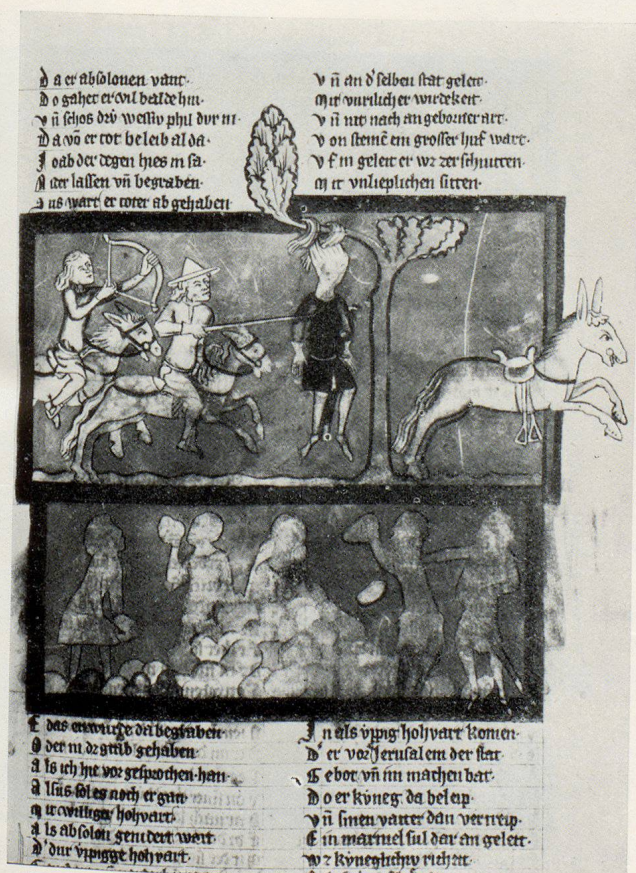 Da er absolonen vant·
Do gahet er vil balde hin·
vñ schos dry
Da võ er tot beleib al da·
Joab der degen hies in sa·
lassen vñ begraben·
wart er toter ab gehaben
vñ an d' selben stat geleit·
Mit vnrilicher wirdekeit·
vñ nit nach an geborner art·
von steinē ein grosser huf wart·
vf in geleit er wz zerschnitten·
Mit vnlieplichen sitten·
das dú begraben·
Oder in dz grab gehaben
als ich hie vor gesprochen han·
alsus sol es noch er gan
Mit williger hohvart·
als absolon genidert wart·
D' dur úppige hohvart·
In als úppig hohvart komen·
D' er vor Jerusalem der stat·
Gebot vñ im machen bat·
Do er kúneg da beleip·
vñ sinen vatter dan vertreip·
Ein marmel sul dar an geleit·
wz kúneglichú richeit·